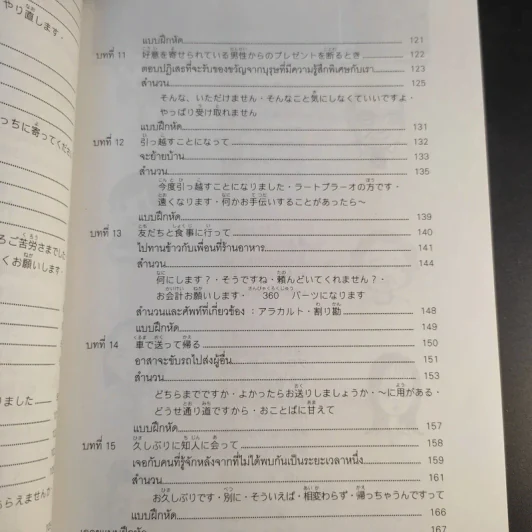 やり直します・
っちに寄ってくだ
ろご苦労さまでした
くお願いします・
りました
らえませんか
แบบฝึกหัด 121
บทที่ 11 好意を寄せられている男性からのプレゼントを断るとき 122
ตอบปฏิเสธที่จะรับของขวัญจากบุรุษที่มีความรู้สึกพิเศษกับเรา 123
สำนวน 125
そんな、いただけません・そんなこと気にしなくていいですよ・
やっぱり受け取れません
แบบฝึกหัด 131
บทที่ 12 引っ越すことになって 132
จะย้ายบ้าน 133
สำนวน 135
今度引っ越すことになりました・ラートプラーオの方です・
遠くなります・何かお手伝いすることがあったら〜
แบบฝึกหัด 139
บทที่ 13 友だちと食事に行って 140
ไปทานข้าวกับเพื่อนที่ร้านอาหาร 141
สำนวน 144
何にします？・そうですね・頼んどいてくれません？・
お会計お願いします・ 360 バーツになります
สำนวนและศัพท์ที่เกี่ยวข้อง : アラカルト・割り勘 148
แบบฝึกหัด 149
บทที่ 14 車で送って帰る 150
อาสาจะขับรถไปส่งผู้อื่น 151
สำนวน 153
どちらまでですか・よかったらお送りしましょうか・〜に用がある・
どうせ通り道ですから・おことばに甘えて
แบบฝึกหัด 157
บทที่ 15 久しぶりに知人に会って 158
เจอกับคนที่รู้จักหลังจากที่ไม่ได้พบกันเป็นระยะเวลาหนึ่ง 159
สำนวน 161
お久しぶりです・別に・そういえば・相変わらず・帰っちゃうんですって
แบบฝึกหัด 166
167